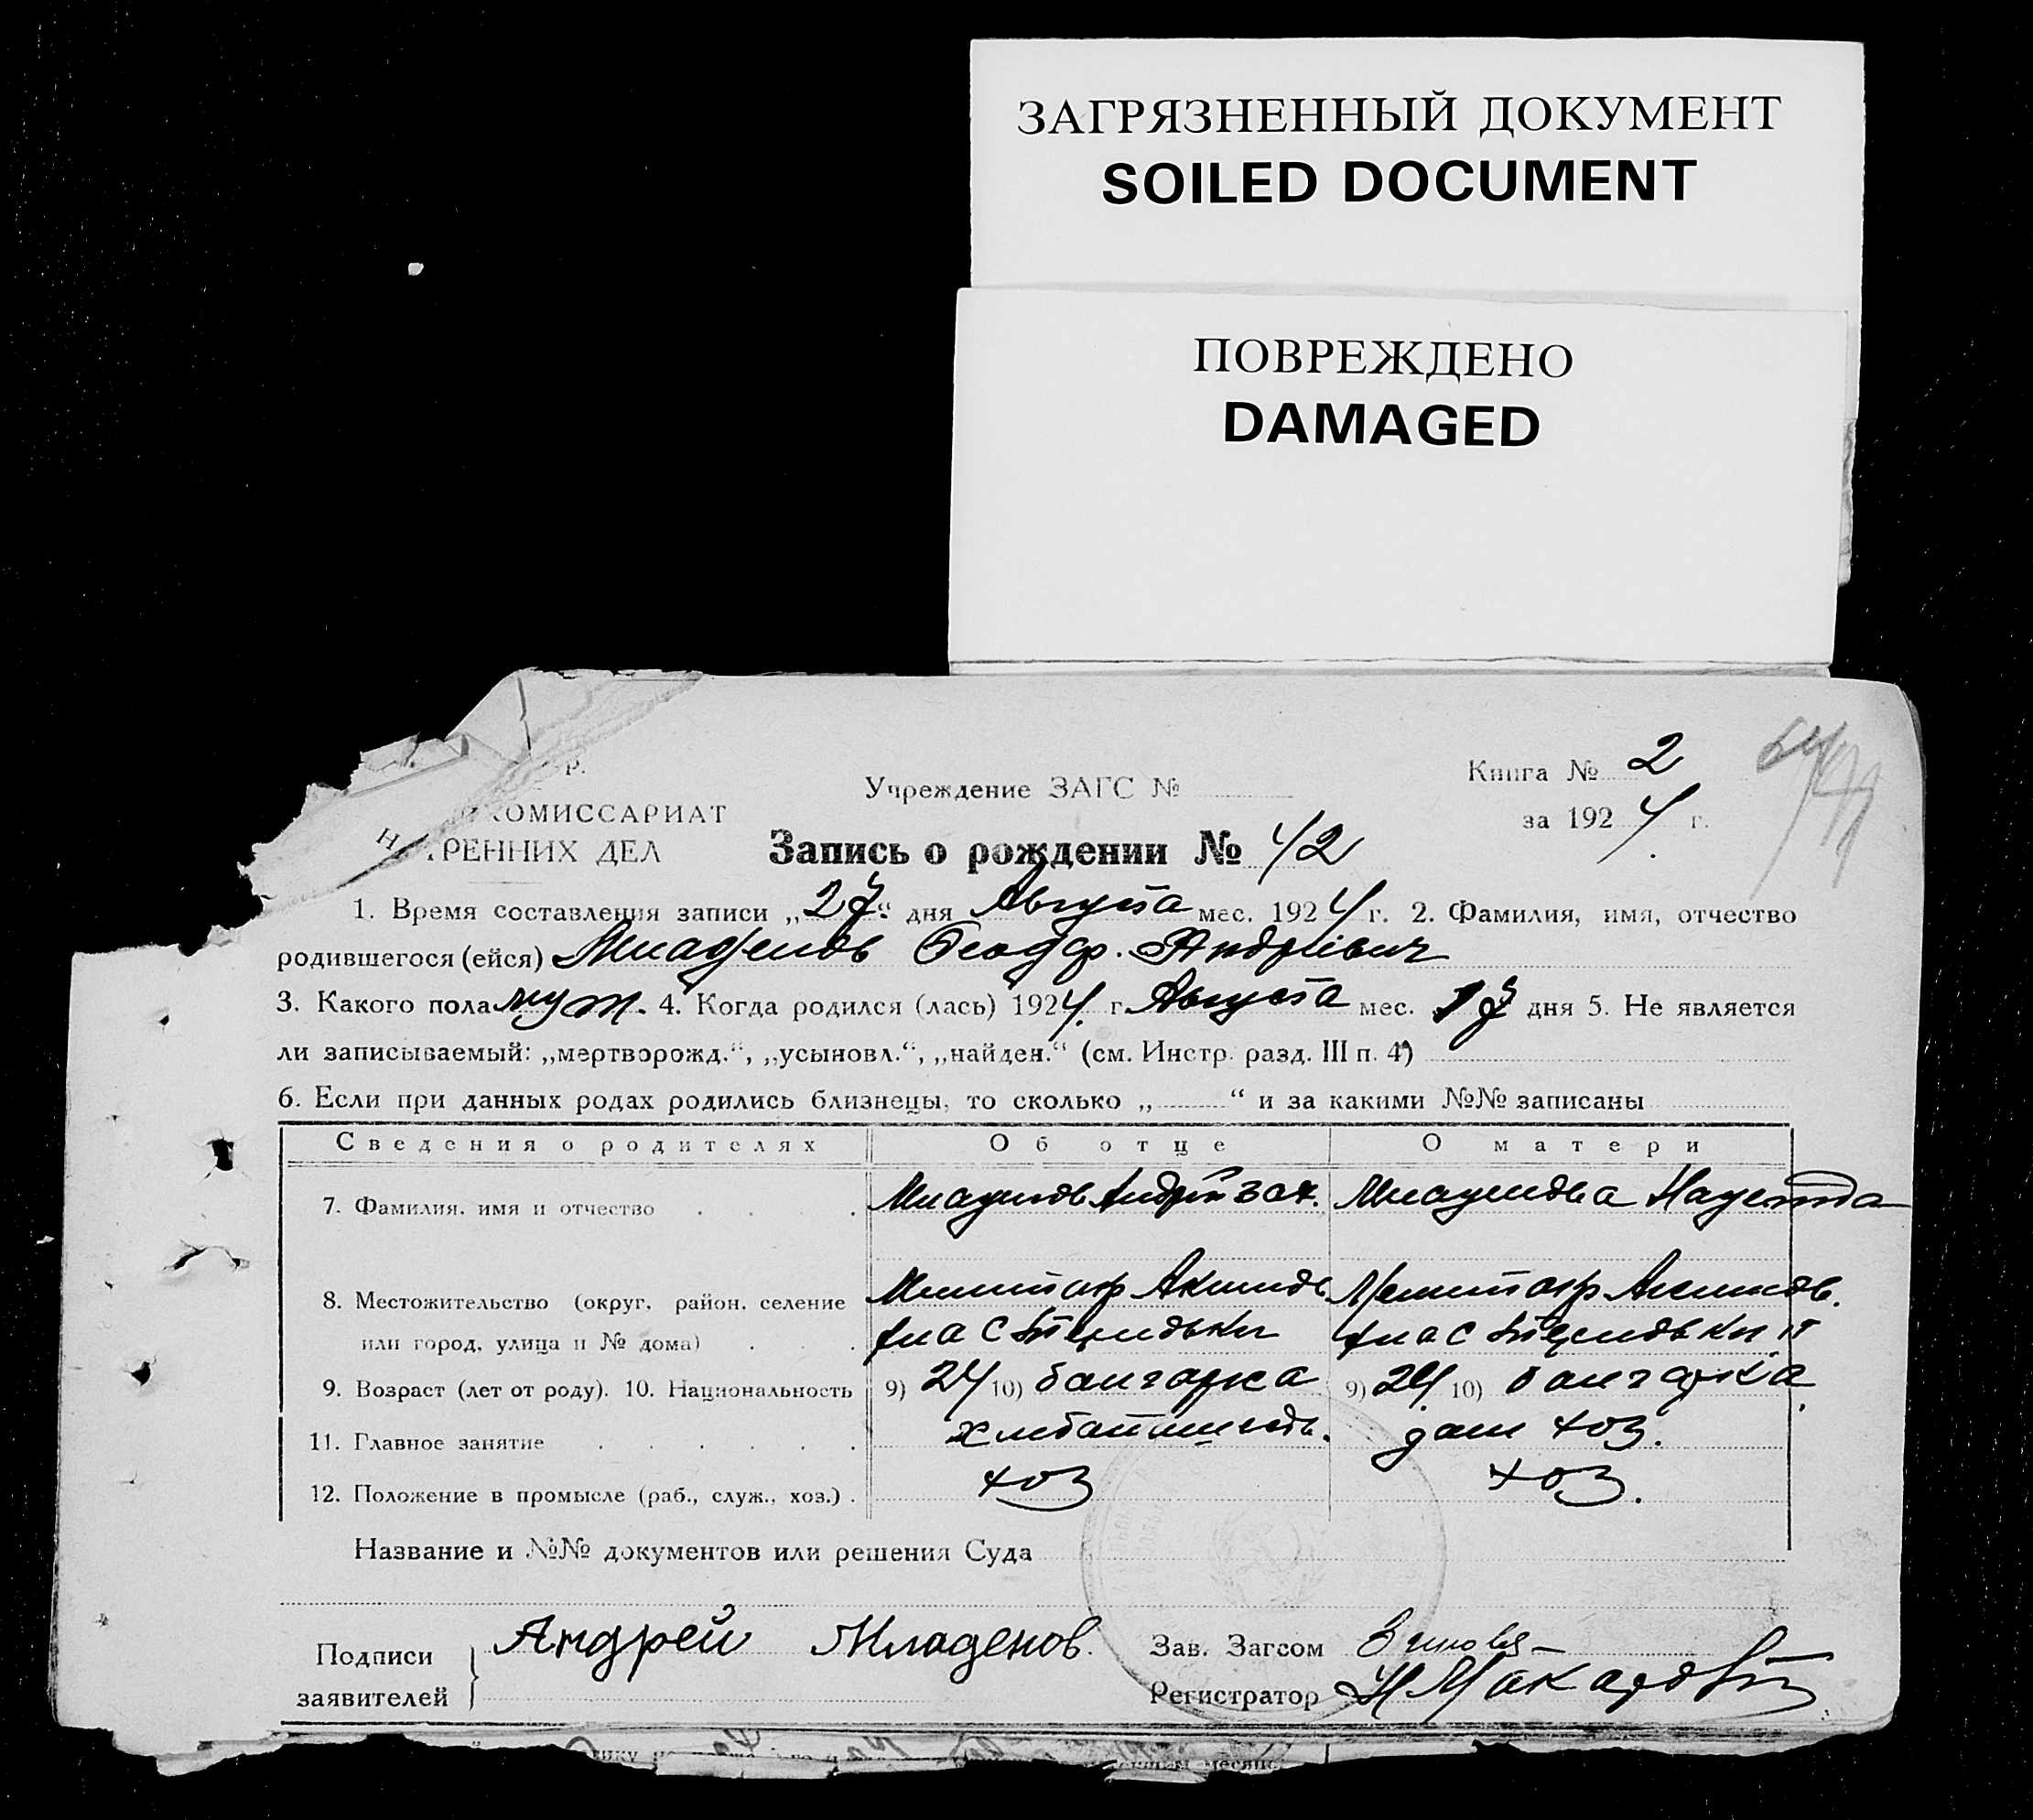 ЗАГРЯЗНЕННЫЙ ДОКУМЕНТ
SOILED DOCUMENT
ПОВРЕЖДЕНО
DAMAGED
Р.
Учреждение ЗАГС №
Книга № 2
КОМИССАРИАТ
за 1924 г.
РЕННИХ ДЕЛ
Запись о рождении № 42
1. Время составления записи „27“ дня Августа мес. 1924 г. 2. Фамилия, имя, отчество
родившегося (ейся) Младенов Андріевич
3. Какого пола муж. 4. Когда родился (лась) 1924 г. Августа мес. 17 дня 5. Не является
ли записываемый: „мертворожд.“, „усыновл.“, „найден.“ (см. Инстр. разд. III п. 4)
6. Если при данных родах родились близнецы, то сколько „ “ и за какими №№ записаны
Сведения о родителях Об отце О матери
7. Фамилия, имя и отчество Младенов Андрей Зах. Младенова Надежда
8. Местожительство (округ, район, селение
или город, улица и № дома)
9. Возраст (лет от роду). 10. Национальность 9) 24 10) болгарка 9) 24 10) болгарка
11. Главное занятие дом хоз.
12. Положение в промысле (раб., служ., хоз.) хоз хоз.
Название и №№ документов или решения Суда
Подписи заявителей Андрей Младенов.
Зав. Загсом
Регистратор